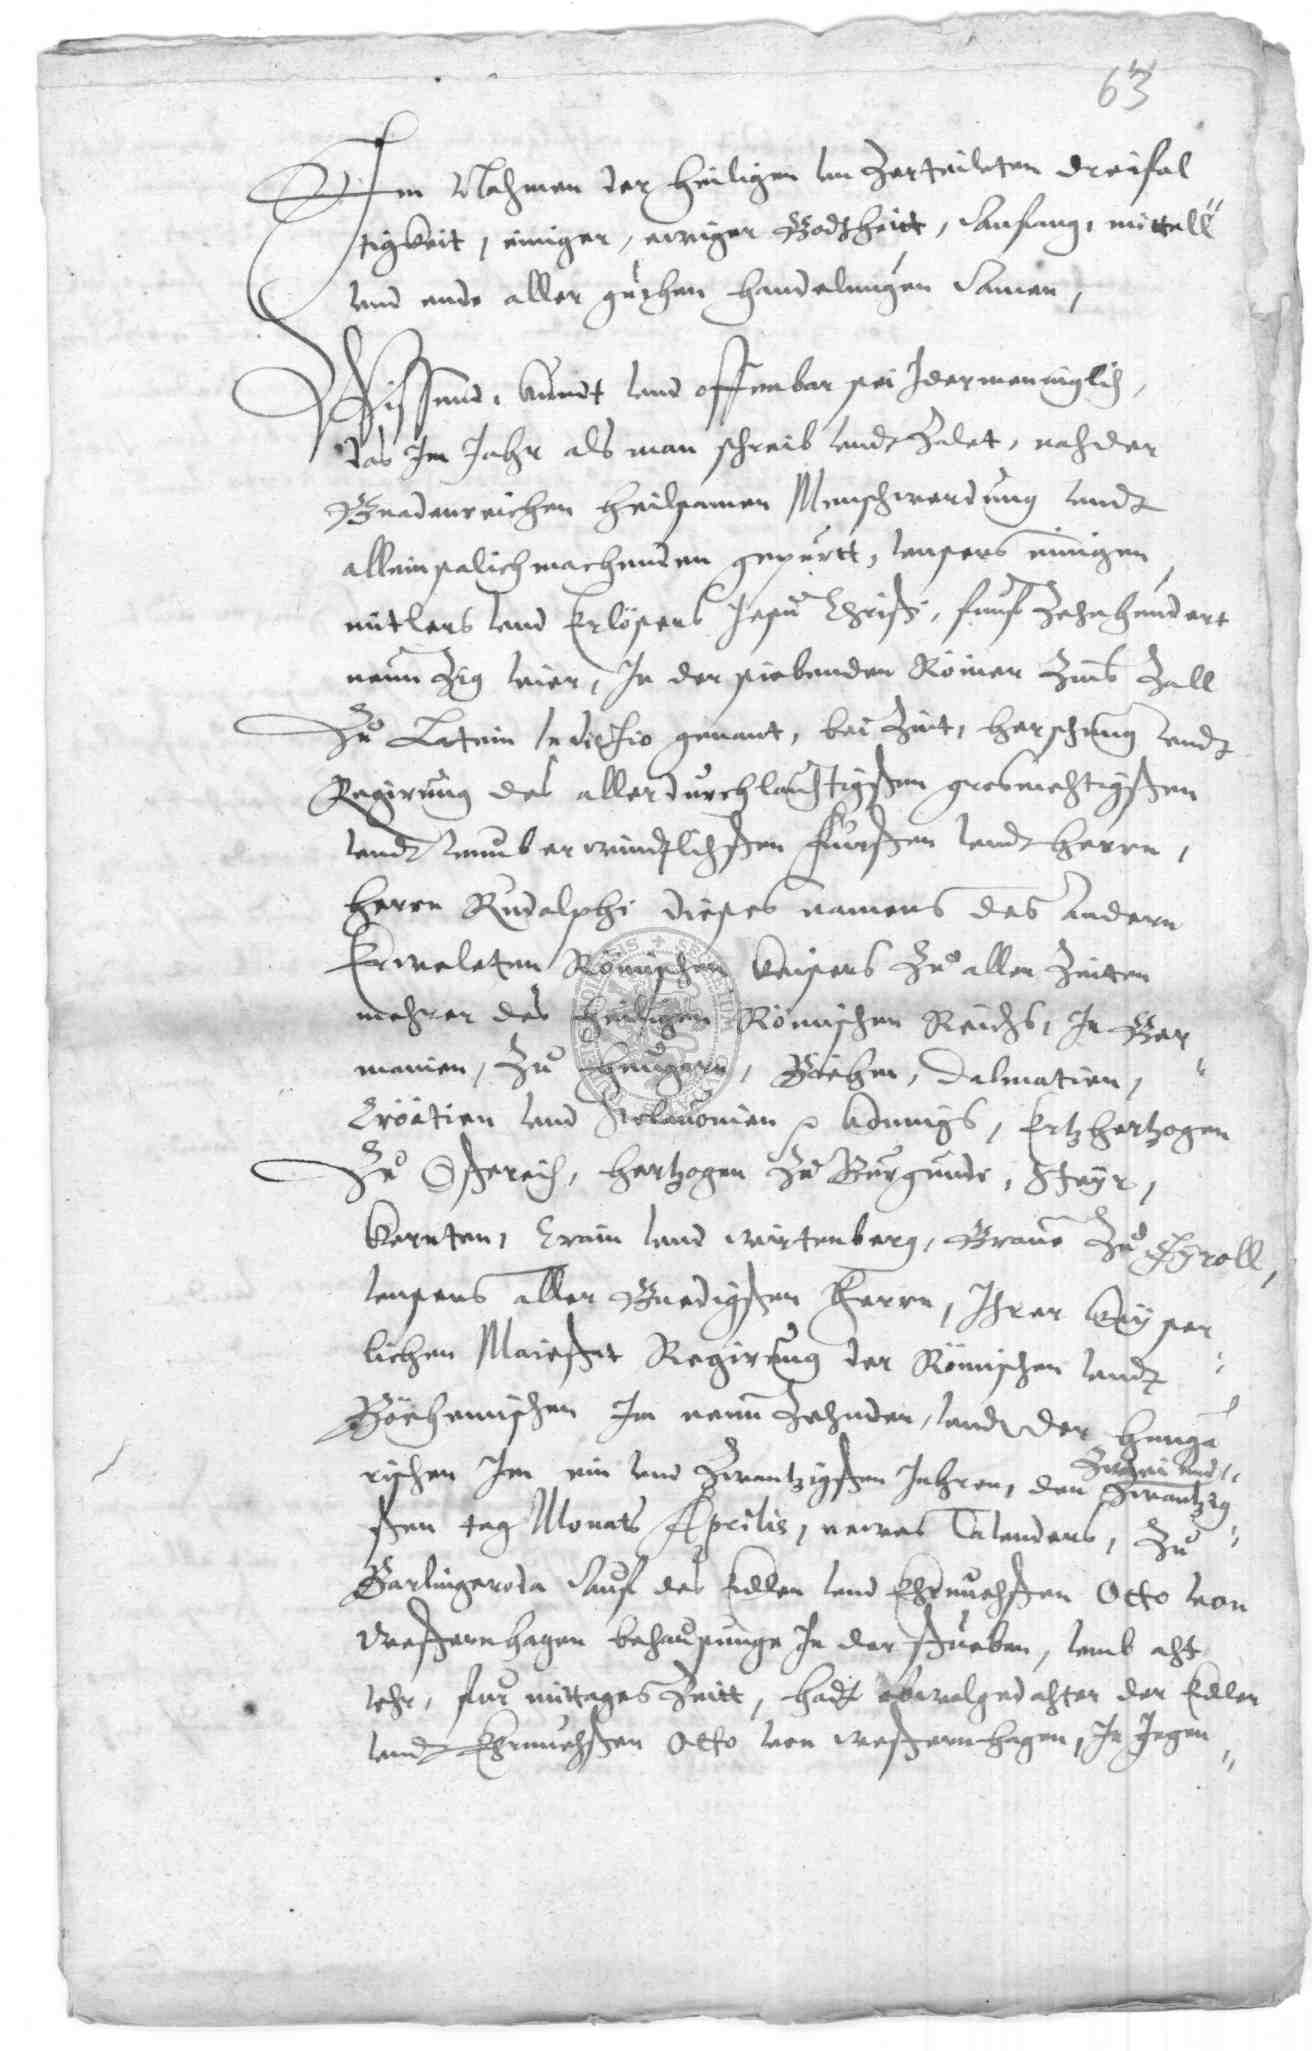 63
Im Nahmen der heiligen unzerteileten dreifal
tigkeit, einiger, ewiger Godtheitt, Anfang, mittell
und ende aller guthen handelungen Amen,
Wissend, kundt und offenbar sei Idermenniglich,
das Im Jahr als man schreib undt Zalet, nach der
Gnadenreichen heilsamen Menschwerdung undt
allein salichmachenden gepurtt, unsers einigen
mitlers und Erlösers Jesu Christi, funfzehenhundert
neunzig vier, In der siebenden Römer Zins Zall
Zu Latein Indictio genant, bei Zeit, herschung undt
Regirung des allerdurchlauchtigsten grosmechtigsten
undt unuberwindtlichsten Fursten undt herrn,
herrn Rudolphi dieses namens des Andern
Erweleten Römischen Keisers Zu allen Zeiten
mehrer des heiligen Römischen Reichs, In Ger
manien, Zu hungern, Böehem, Dalmatien,
Cröatien und Sclavonien Konnigs, Ertzhertzogen
Zu Östereich, hertzogen Zu Burgundi, Steyr,
Kernten, Crain und wirtenberg, Grave Zu Tyroll,
unsers aller Gnedigsten Herrn, Ihrer Keyser
lichen Maiestet Regirung der Römischen undt
Böehemischen Im neunzehenden, und der hunga
rischen Im ein und Zwantzigsten Jahren, den Zwei und Zwantzig
sten tag Monats Aprilis, newes Calenders, Zu
Berlingeroda Auf des Edlen und Ehrnvehsten Otto von
Westernhagen behausunge In der stueben, umb acht
uhr, fur mittages Zeitt, hadt obwolgedachter der Edler
undt Ehrnvehsten Otto von Westernhagen, In Jegen